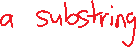 a substring